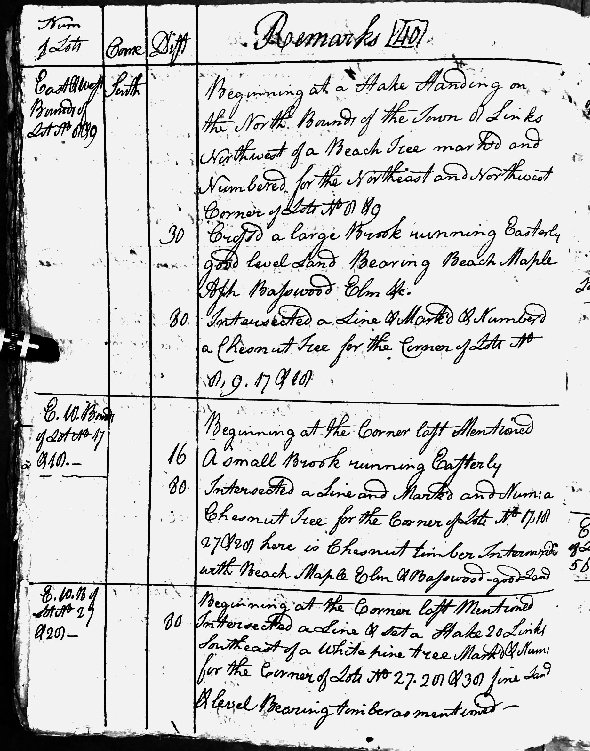 Num Remarks [40]
of Lots Corse Dist
East & West South Beginning at a Stake Standing on
Bounds of the North Bounds of the Town 8 Links
Lot No 8 & 9 Northwest of a Beach Tree markd and
Numbered for the Northeast and Northwest
Corner of Lots No 8 & 9
30 Crossd a large Brook running Easterly
good level Land Bearing Beach Maple
Ash Basswood Elm &c.
80 Intersected a Line & Markd & Numberd
a Chesnut Tree for the Corner of Lots No
8, 9. 17 & 18
E. W. Bonds Beginning at the Corner last Mentioned
of Lot No 17
& 18.— 16 A small Brook running Easterly
80 Intersected a Line and Markd and Num:a
Chesnut Tree for the Corner of Lots No 17,18
27 & 28 here is Chesnut timber
with Beach Maple Elm & Basswood good Land
E. W. B of Beginning at the Corner last Mentioned
Lot No 27 80 Intersected a Line & set a Stake 20 Links
& 28— Southeast of a White pine tree Markd & Num:
for the Corner of Lots No 27. 28 & 38 fine Land
& level Bearing timber as mentioned—